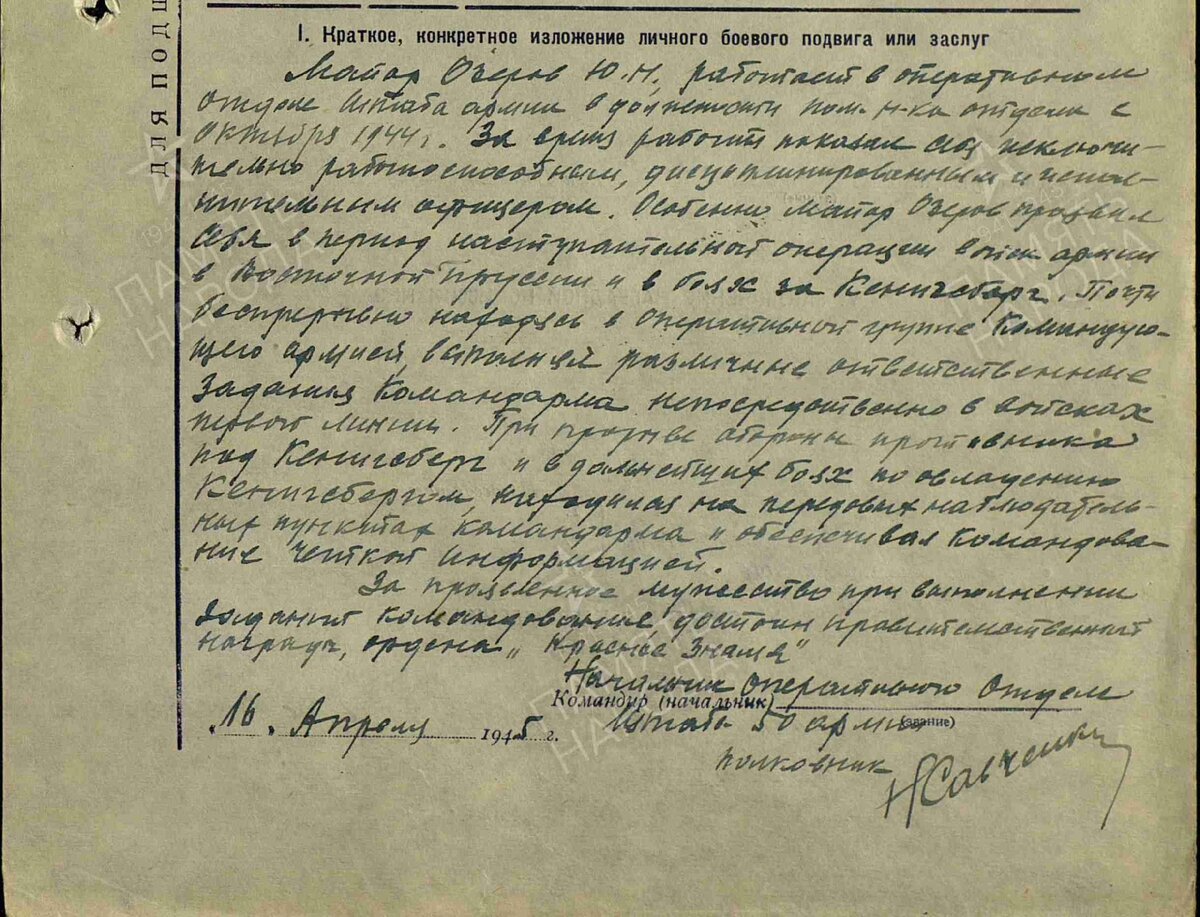 ДЛЯ ПОДШ
I. Краткое, конкретное изложение личного боевого подвига или заслуг
Майор Озеров Ю.Н. работает в оперативном
отделе Штаба армии в должности пом. Н-ка отдела с
Октября 1944 г. За время работы показал себя исключи-
тельно работоспособным, дисциплинированным и испол-
нительным офицером. Особенно майор Озеров проявил
себя в период наступательной операции войск армии
в Восточной Пруссии и в боях за Кенигсберг. Почти
беспрерывно находясь в оперативной группе Командую-
щего армией, выполняя различные ответственные
задания Командарма непосредственно в войсках
первой линии. При прорыве обороны противника
под Кенигсберг и в дальнейших боях по овладению
Кенигсбергом, находился на передовых наблюдатель-
ных пунктах командарма и обеспечивал командова-
ние четкой информацией.
За проявленное мужество при выполнении
задания командования, достоин правительственной
награды, ордена „Красное Знамя"
Начальник Оперативного Отдела
Командир (начальник)
„16„ Апреля 1945 г. Штаба 50 армии
(звание)
полковник
Н Савченко
ПАМЯТЬ НАРОДА
ПАМЯТЬ НАРОДА
ПАМЯТЬ НАРОДА